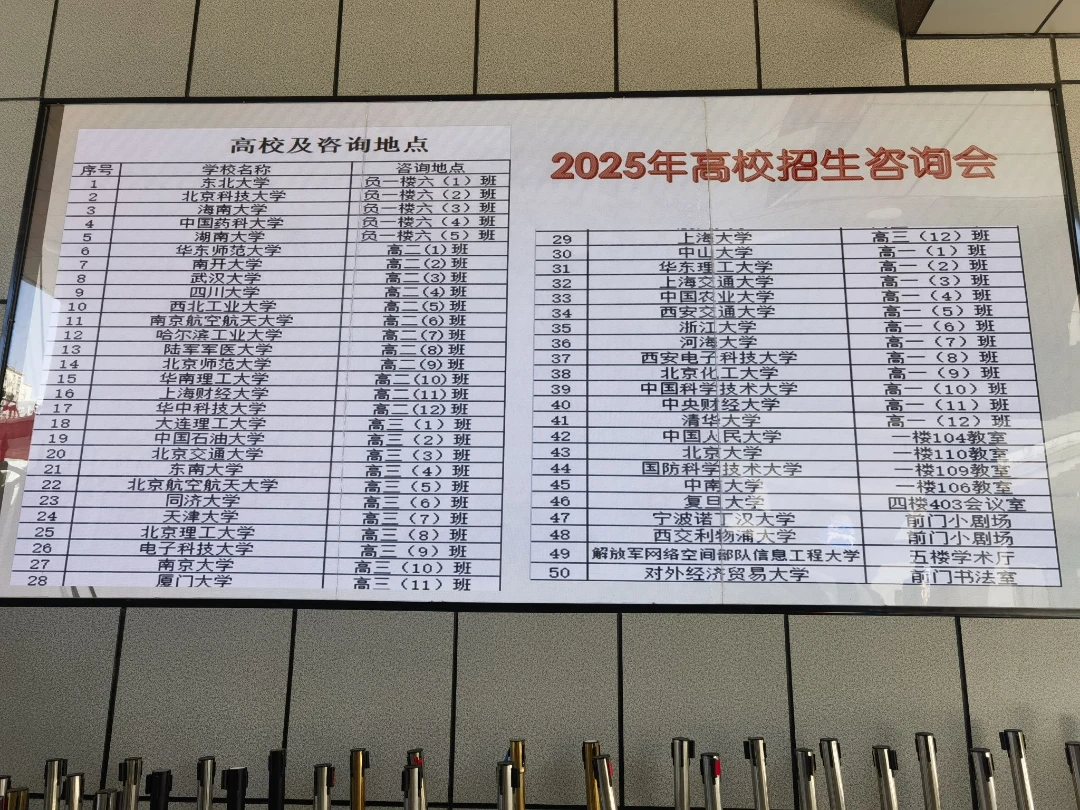 高校及咨询地点
序号 学校名称 咨询地点
1 东北大学 负一楼六（1）班
2 北京科技大学 负一楼六（2）班
3 海南大学 负一楼六（3）班
4 中国药科大学 负一楼六（4）班
5 湖南大学 负一楼六（5）班
6 华东师范大学 高二(1)班
7 南开大学 高二(2)班
8 武汉大学 高二(3)班
9 四川大学 高二(4)班
10 西北工业大学 高二(5)班
11 南京航空航天大学 高二(6)班
12 哈尔滨工业大学 高二(7)班
13 陆军军医大学 高二(8)班
14 北京师范大学 高二(9)班
15 华南理工大学 高二(10)班
16 上海财经大学 高二(11)班
17 华中科技大学 高二(12)班
18 大连理工大学 高三（1）班
19 中国石油大学 高三（2）班
20 北京交通大学 高三（3）班
21 东南大学 高三（4）班
22 北京航空航天大学 高三（5）班
23 同济大学 高三（6）班
24 天津大学 高三（7）班
25 北京理工大学 高三（8）班
26 电子科技大学 高三（9）班
27 南京大学 高三（10）班
28 厦门大学 高三（11）班
2025年高校招生咨询会
29 上海大学 高三（12）班
30 中山大学 高一（1）班
31 华东理工大学 高一（2）班
32 上海交通大学 高一（3）班
33 中国农业大学 高一（4）班
34 西安交通大学 高一（5）班
35 浙江大学 高一（6）班
36 河海大学 高一（7）班
37 西安电子科技大学 高一（8）班
38 北京化工大学 高一（9）班
39 中国科学技术大学 高一（10）班
40 中央财经大学 高一（11）班
41 清华大学 高一（12）班
42 中国人民大学 一楼104教室
43 北京大学 一楼110教室
44 国防科学技术大学 一楼109教室
45 中南大学 一楼106教室
46 复旦大学 四楼403会议室
47 宁波诺丁汉大学 前门小剧场
48 西交利物浦大学 前门小剧场
49 解放军网络空间部队信息工程大学 五楼学术厅
50 对外经济贸易大学 前门书法室